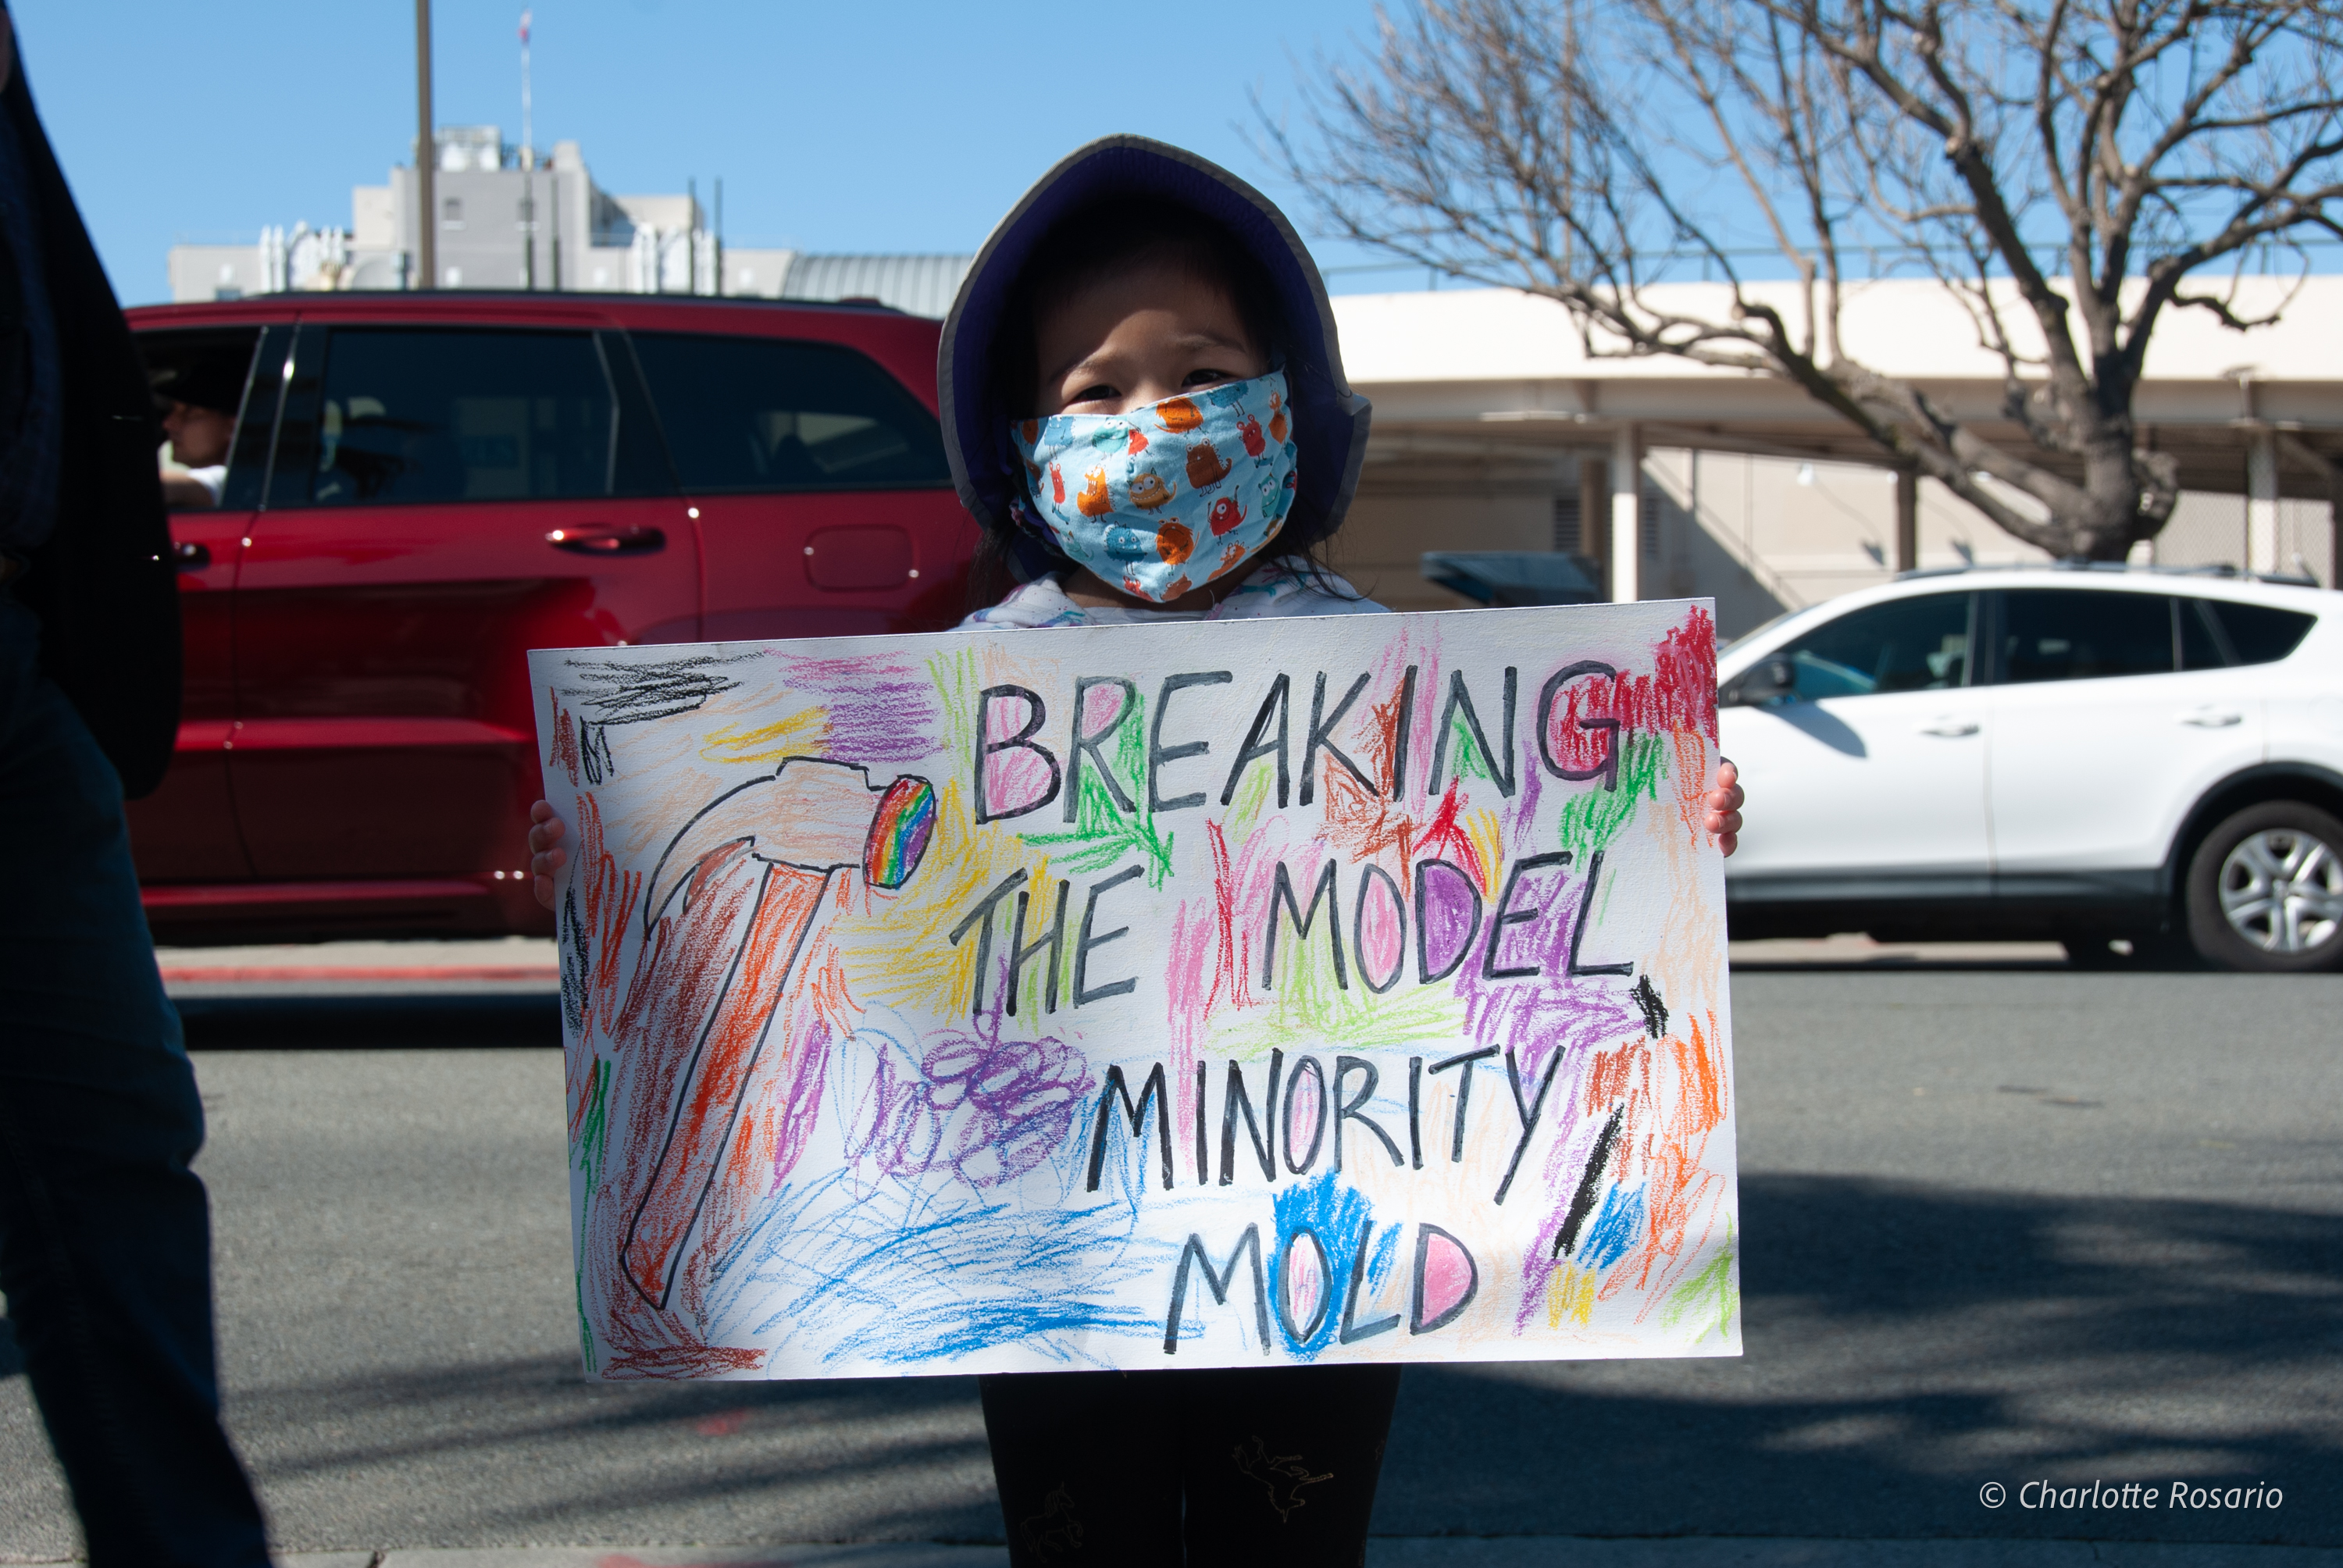 BREAKING
THE MODEL
MINORITY
MOLD
© Charlotte Rosario